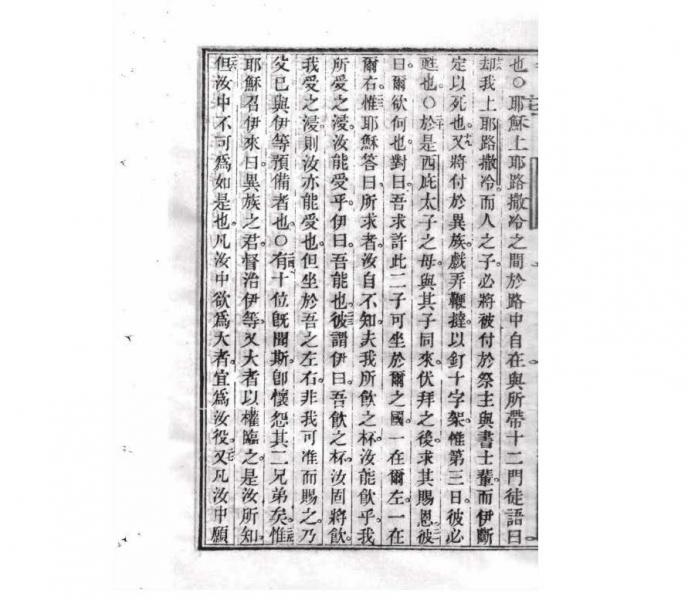 也○耶穌上耶路撒冷之間於路中自在與所帶十二門徒語曰
却我上耶路撒冷而人之子必將被付於祭主與書士輩而伊斷
定以死也又將付於異族戲弄鞭撻以釘十字架惟第三日彼必
甦也○於是西庇太子之母與其子同來伏拜之後求其賜恩彼
曰爾欲何也對曰吾求許此二子可坐於爾之國一在爾左一在
爾右惟耶穌答曰所求者汝自不知夫我所飲之杯汝能飲乎我
所受之浸汝能受乎伊曰吾能也彼謂伊曰吾飲之杯汝固將飲
我受之浸則汝亦能受也但坐於吾之左右非我可准而賜之乃
父已與伊等預備者也○有十位既聞斯卽懷怨其二兄弟矣惟
耶穌召伊來曰異族之君督治伊等又大者以權臨之是汝所知
但汝中不可爲如是也凡汝中欲爲大者宜爲汝役又凡汝中願